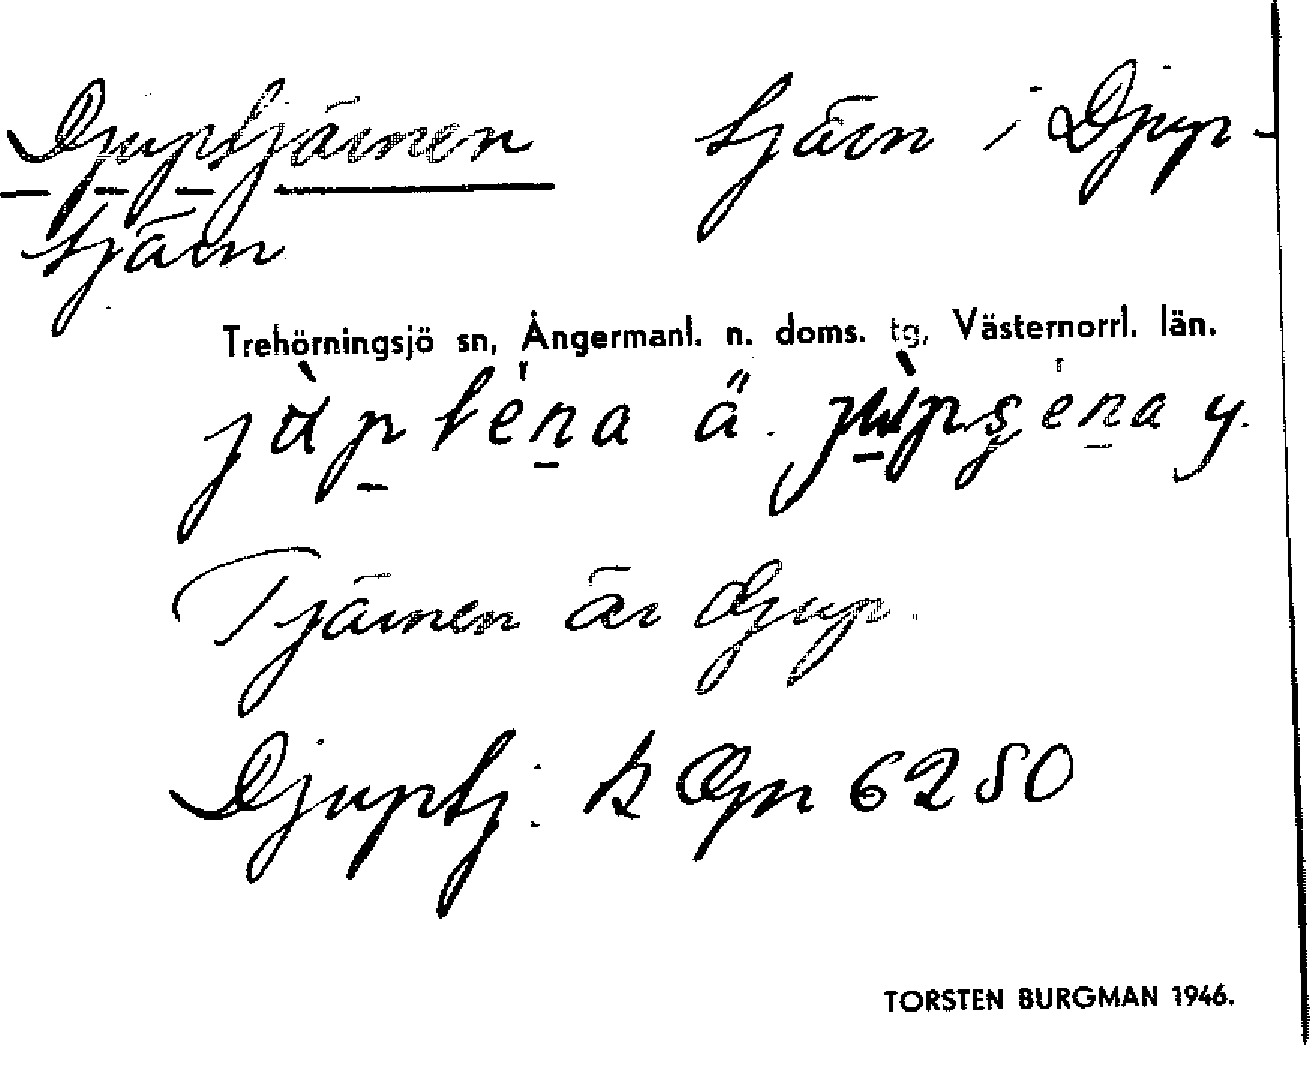 Djuptjärnen tjärn i Djup-
tjärn
Trehörningsjö sn, Ångermanl. n. doms. tg, Västernorrl. län.
ä. y.
Tjärnen är djup.
Djuptj: k Ggn 6250
TORSTEN BURGMAN 1946.